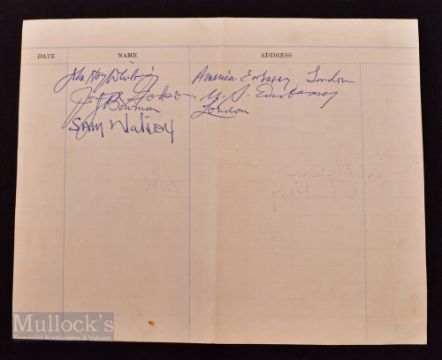 DATE NAME ADDRESS
John Hay Whitney America Embassy London
J. J. Bowman U. S. Embassy
London
SAM Watson
Mullock's
Specialist Auctioneers & Valuers